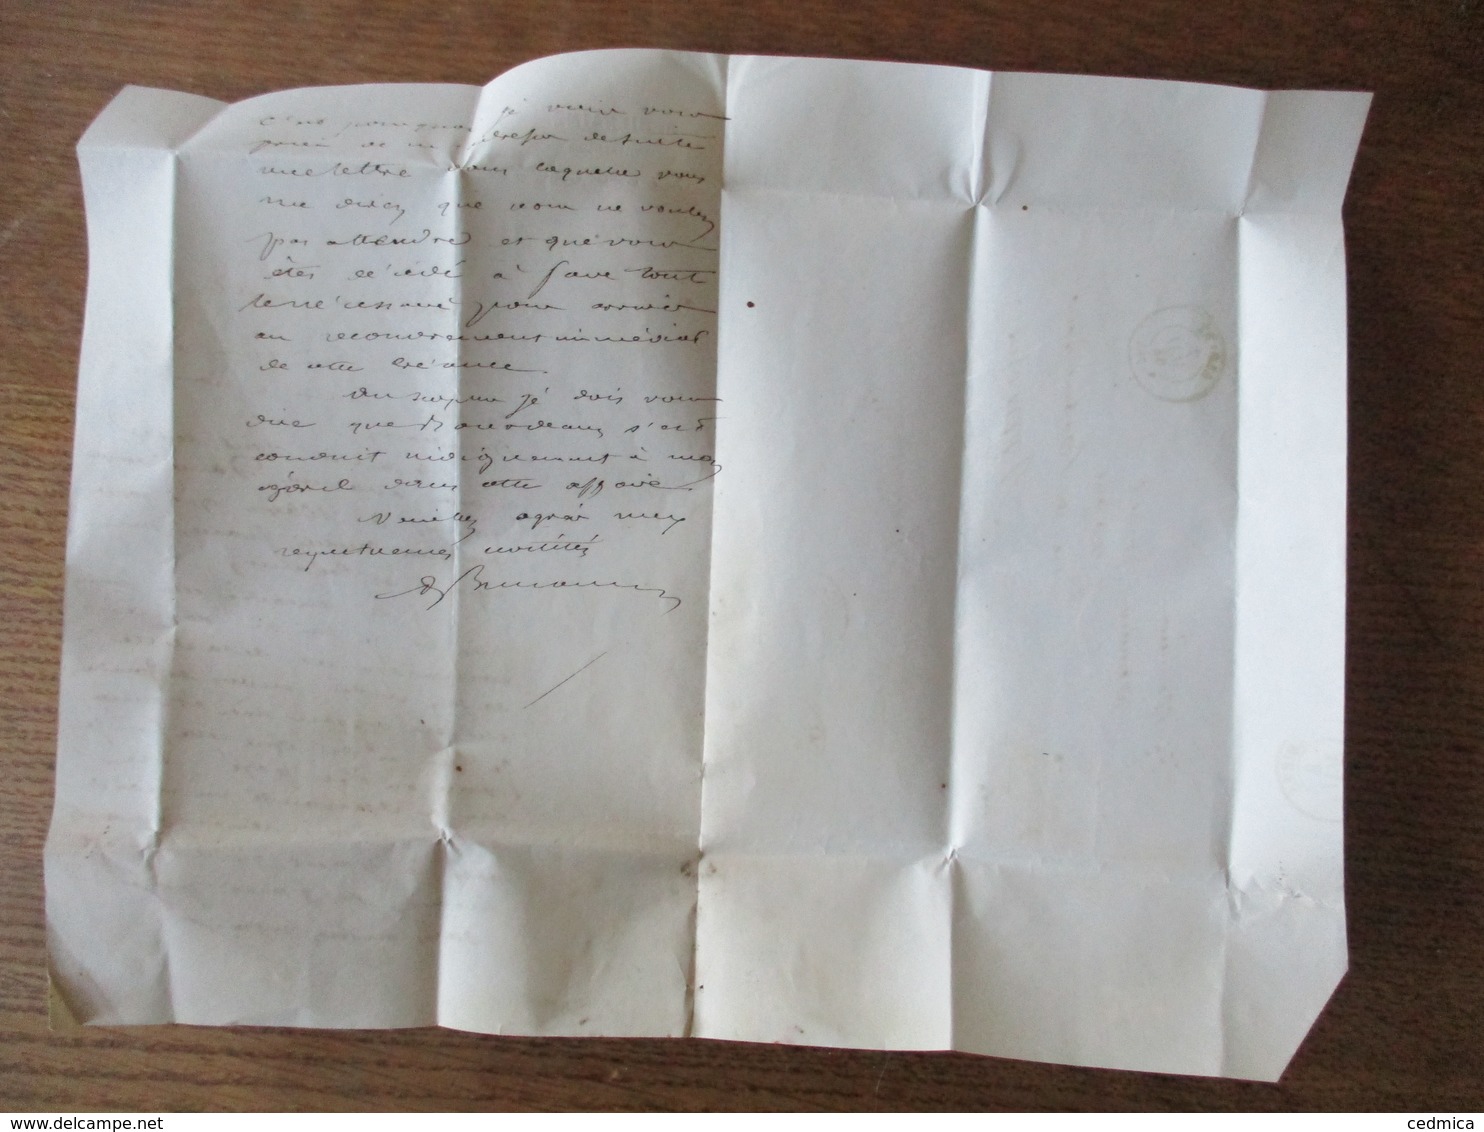 c'est pourquoi je viens vous
prier de m'adresser de suite
une lettre dans laquelle vous
me direz que vous ne voulez
pas attendre et que vous
êtes décidé à faire tout
le nécessaire pour arriver
au recouvrement immédiat
de cette créance.
Au surplus je dois vous
dire que s'est
conduit indignement à mon
égard dans cette affaire.
Veuillez agréer mes
civilités
delcampe.net
cedmica